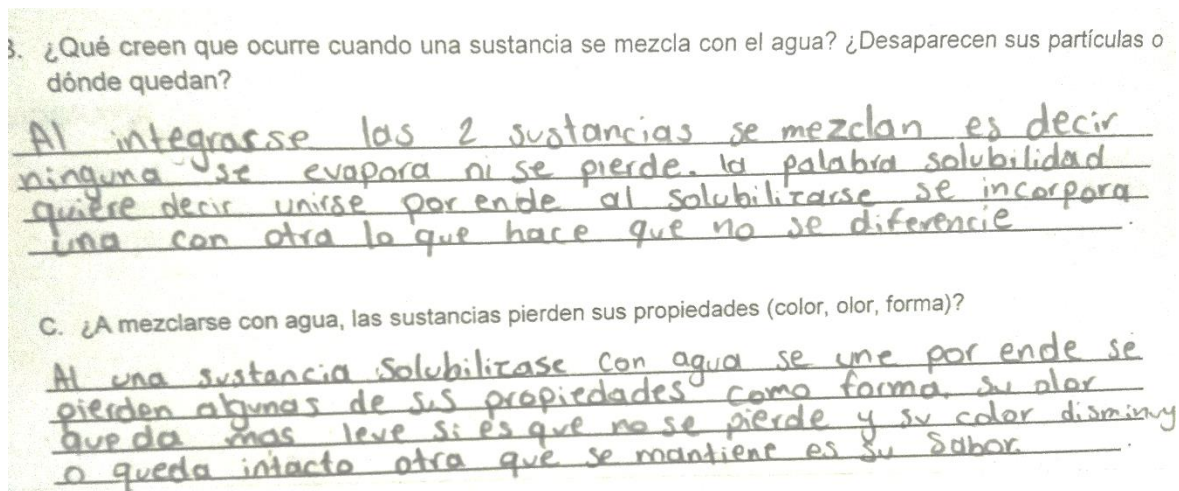 3. ¿Qué creen que ocurre cuando una sustancia se mezcla con el agua? ¿Desaparecen sus partículas o
dónde quedan?
Al integrarse las 2 sustancias se mezclan es decir
ninguna se evapora ni se pierde. la palabra solubilidad
quiere decir unirse por ende al solubilizarse se incorpora
una con otra lo que hace que no se diferencie.
C. ¿A mezclarse con agua, las sustancias pierden sus propiedades (color, olor, forma)?
Al una sustancia solubilizase con agua se une por ende se
pierden algunas de sus propiedades como forma. su olor
queda mas leve si es que no se pierde y su color disminuy
o queda intacto otra que se mantiene es su sabor.